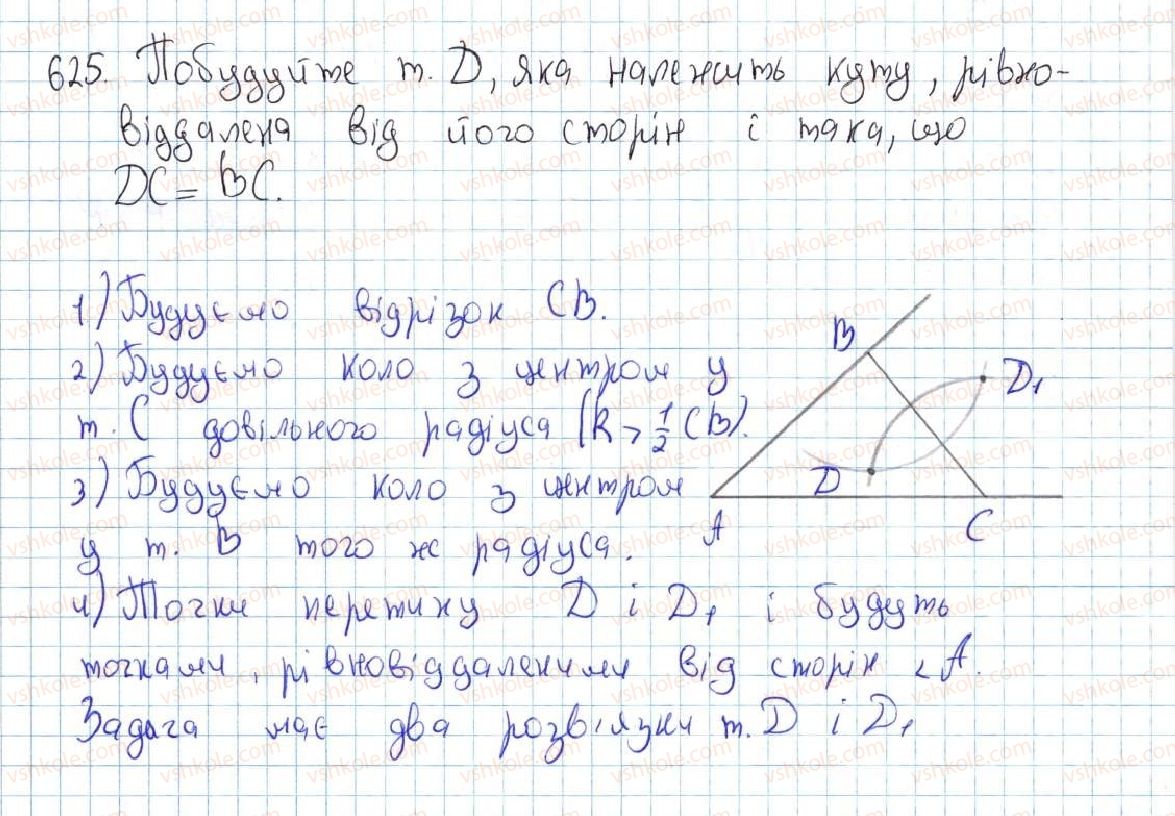 625. Побудуйте т. D, яка належить куту, рівно-
віддалена від його сторін і така, що
DC = BC.
1) Будуємо відрізок CB.
2) Будуємо коло з центром у
т. C довільного радіуса (R > 1/2 CB).
3) Будуємо коло з центром
у т. B того ж радіуса.
4) Точки перетину D і D₁ і будуть
точками, рівновіддаленими від сторін <A.
Задача має два розв'язки т. D і D₁
B
D₁
D
A
C
vshkole.com